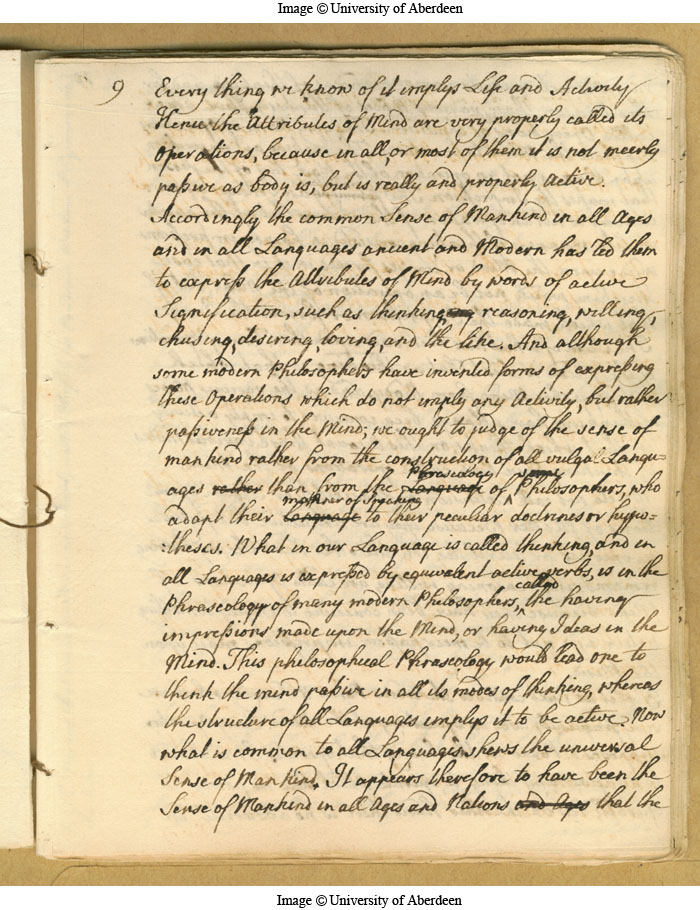 Image © University of Aberdeen
9 Every thing we know of it implys Life and Activity
Hence the Attributes of Mind are very properly called its
Operations, because in all, or most of them it is not meerly
passive as body is, but is really and properly Active.
Accordingly the common Sense of Mankind in all Ages
and in all Languages ancient and Modern has led them
to express the Attributes of Mind by words of active
Signification, such as thinking, reasoning, willing,
chusing, desiring, loving, and the like. And although
some modern Philosophers have invented forms of expressing
these Operations which do not imply any Activity, but rather
passiveness in the Mind; we ought to judge of the sense of
mankind rather from the construction of all vulgal Langu=
Phraseology some
ages rather than from the Language of Philosophers, who
manner of Speaking
adapt their Language to their peculiar doctrines or hypo=
:theses. What in our Language is called thinking, and in
all Languages is expressed by equivalent active verbs, is in the
called
Phraseology of many modern Philosophers, the having
impressions made upon the Mind, or having Ideas in the
Mind. This philosophical Phraseology would lead one to
think the mind passive in all its modes of thinking, whereas
the structure of all Languages implys it to be active. Now
what is common to all Languages shews the universal
Sense of Mankind. It appears therefore to have been the
Sense of Mankind in all Ages and Nations and Ages that the
Image © University of Aberdeen